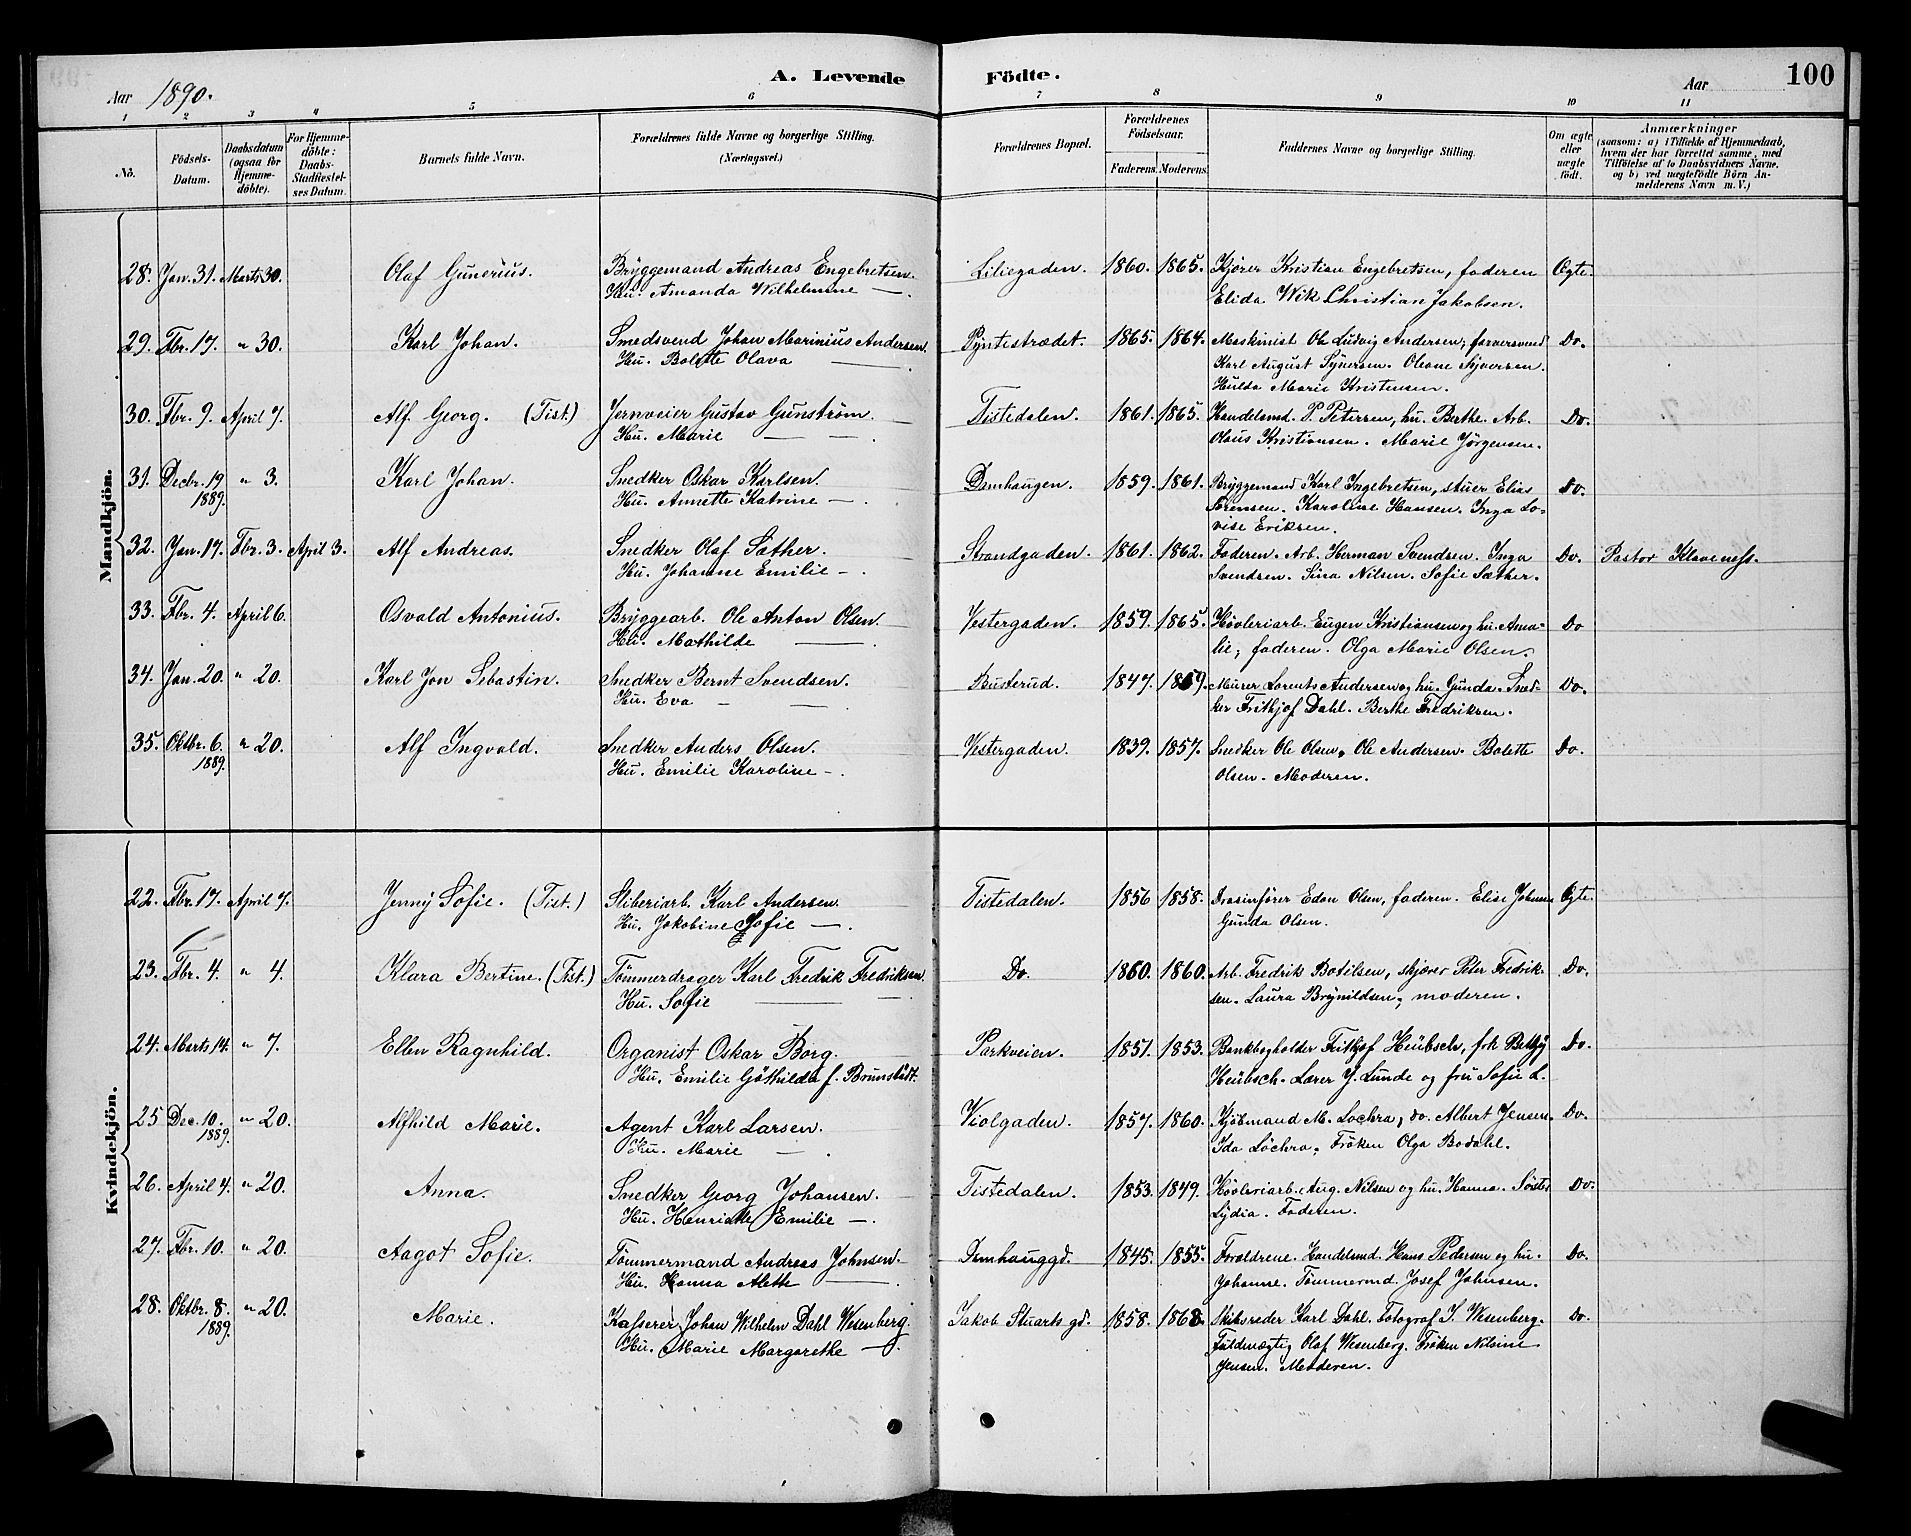 A. Levende Födte.
Aar 1890. Aar 100
1 2 3 4 5 6 7 8 9 10 11
No. Födsels-Datum. Daabsdatum (ogsaa for Hjemmedöbte). For Hjemmedöbte: Daabs-Stadfæstelses Datum. Barnets fulde Navn. Forældrenes fulde Navne og borgerlige Stilling. (Næringsvei.) Forældrenes Bopæl. Forældrenes Födselsaar. Faderens. Moderens. Faddernes Navne og borgerlige Stilling. Om ægte eller uægte födt. Anmærkninger (saasom: a) i Tilfælde af Hjemmedaab, hvem der har forrettet samme, med Tilföielse af to Daabsvidners Navne. og b) ved uægtefödte Börn Anmelderens Navn m. V.)
Mandkjön.
28. Jan. 31. Marts 30. Olaf Gunerius. Bryggemand Andreas Engebretsen. Liliegaden. 1860. 1865. Kjörer Kristian Engebretsen, faderen Ægte
Hu. Amanda Wilhelmine — . Elida Wik Christian Jakobsen.
29. Fbr. 17. " 30. Karl Johan. Smedsvend Johan Marinius Andersen. Pyntestrædet. 1865. 1864. Maskinist Ole Ludvig Andersen, farversvend Do.
Hu. Bolette Olava — Karl August Synersen. Oleane Syversen.
Hulda Marie Kristensen.
30. Fbr. 9. April 7. Alf Georg. (Tist.) Jernveier Gustav Gunström. Tistedalen. 1861. 1865. Handelsmd. P. Petersen, hu. Berthe. Arb. Do.
Hu. Marie — — . Olaus Kristiansen. Marie Jörgensen.
31. Decbr. 19 " 3. Karl Johan. Snedker Oskar Karlsen. Damhaugen. 1859. 1861. Bryggemand Karl Ingebretsen, stuer Elias Do.
1889. Hu. Annette Katrine — . Sörensen. Karoline Hansen. Inga Lo-
vise Eriksen.
32. Jan. 17. Fbr. 3. April 3. Alf Andreas. Snedker Olaf Sæther. Strandgaden. 1861. 1862. Faderen. Arb. Herman Svendsen. Inga Do. Pastor Klaveness.
Hu. Johanne Emilie — . Svendsen. Sina Nilsen. Sofie Sæther.
33. Fbr. 4. April 6. Osvald Antonius. Bryggearb. Ole Anton Olsen. Vestergaden. 1859. 1865. Høvleriarb. Eugen Kristiansen og hu. Ama- Do
Hu. Mathilde — . lie, faderen. Olga Marie Olsen.
34. Jan. 20. " 20. Karl Jon Sebastin. Snedker Bernt Svendsen. Busterud. 1847. 1859. Murer Lorents Andersen og hu. Gunda. Sned- Do.
Hu. Eva — — . ker Frithjof Dahl. Berthe Fredriksen.
35. Oktbr. 6. " 20. Alf Ingvald. Snedker Anders Olsen. Vestergaden. 1839. 1857. Snedker Ole Olsen, Ole Andersen. Bolette Do.
1889. Hu. Emilie Karoline — . Olsen. Moderen.
Kvindekjön.
22. Fbr. 17. April 7. Jenny Sofie. (Tist.) Sliberiarb. Karl Andersen. Tistedalen. 1856 1858. Drasinförer Edon Olsen, faderen. Elise Johnsen Ægte.
Hu. Jakobine Sofie — . Gunda Olsen.
23. Fbr. 4. " 4. Klara Bertine. (Tist.) Tömmerdrager Karl Fredrik Fredriksen Do. 1860. 1860. Arb. Fredrik Botilsen, skjærer Peter Fredrik- Do.
Hu. Sofie — — sen. Laura Brynildsen, moderen.
24. Marts 14. " 7. Ellen Ragnhild. Organist Oskar Borg. Parkveien. 1851. 1853. Bankbogholder Frithjof Heübsch, frk Betsy Do.
Hu. Emilie Göthilda f. Brunstädt. Heübsch. Lærer J. Lunde og fru Sofie L.
25 Dec. 10. " 20. Alfhild Marie. Agent Karl Larsen. Violgaden. 1857. 1860. Kjöbmand M. Lochra, do. Albert Jensen. Do.
1889. Hu. Marie — . Ida Löchra, Fröken Olga Bodahl.
26. April 4. " 20. Anna. Snedker Georg Johansen. Tistedalen. 1853. 1849. Høvleriarb. Aug. Nilsen og hu. Hanna. Søster Do.
Hu. Henriette Emilie — . Lydia. Faderen.
27. Fbr. 10. " 20. Aagot Sofie. Tömmermand Andreas Johnsen. Damhauggd. 1845. 1855. Forældrene. Handelsmd. Hans Pedersen og hu. Do.
Hu. Hanna Alette — . Johanne. Tömmermd Josef Johnsen.
28. Oktbr. 8. " 20. Marie. Kasserer Johan Wilhelm Dahl Wesenberg. Jakob Stuarts gd. 1858. 1868. Skibsreder Karl Dahl. Fotograf I. Wesenberg. Do.
1889. Hu. Marie Margarethe — . Fuldmægtig Olaf Wesenberg. Fröken Nilsine
Jensen. Moderen.